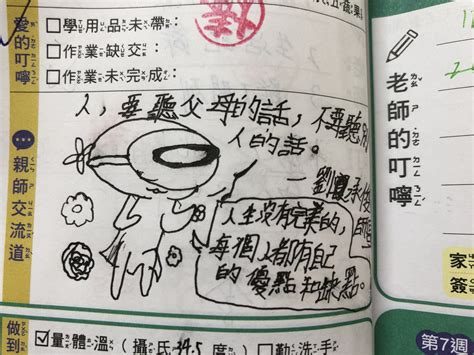 愛的叮嚀
□學用品未帶：
□作業缺交：
□作業未完成：
親師交流道
人，要聽父母的話，不要聽別
人的話。
人生沒有完美的，
每個人都有自己
的優點和缺點。
老師的叮嚀
做到
☑量體溫(攝氏34.5度)
□勤洗手
第7週